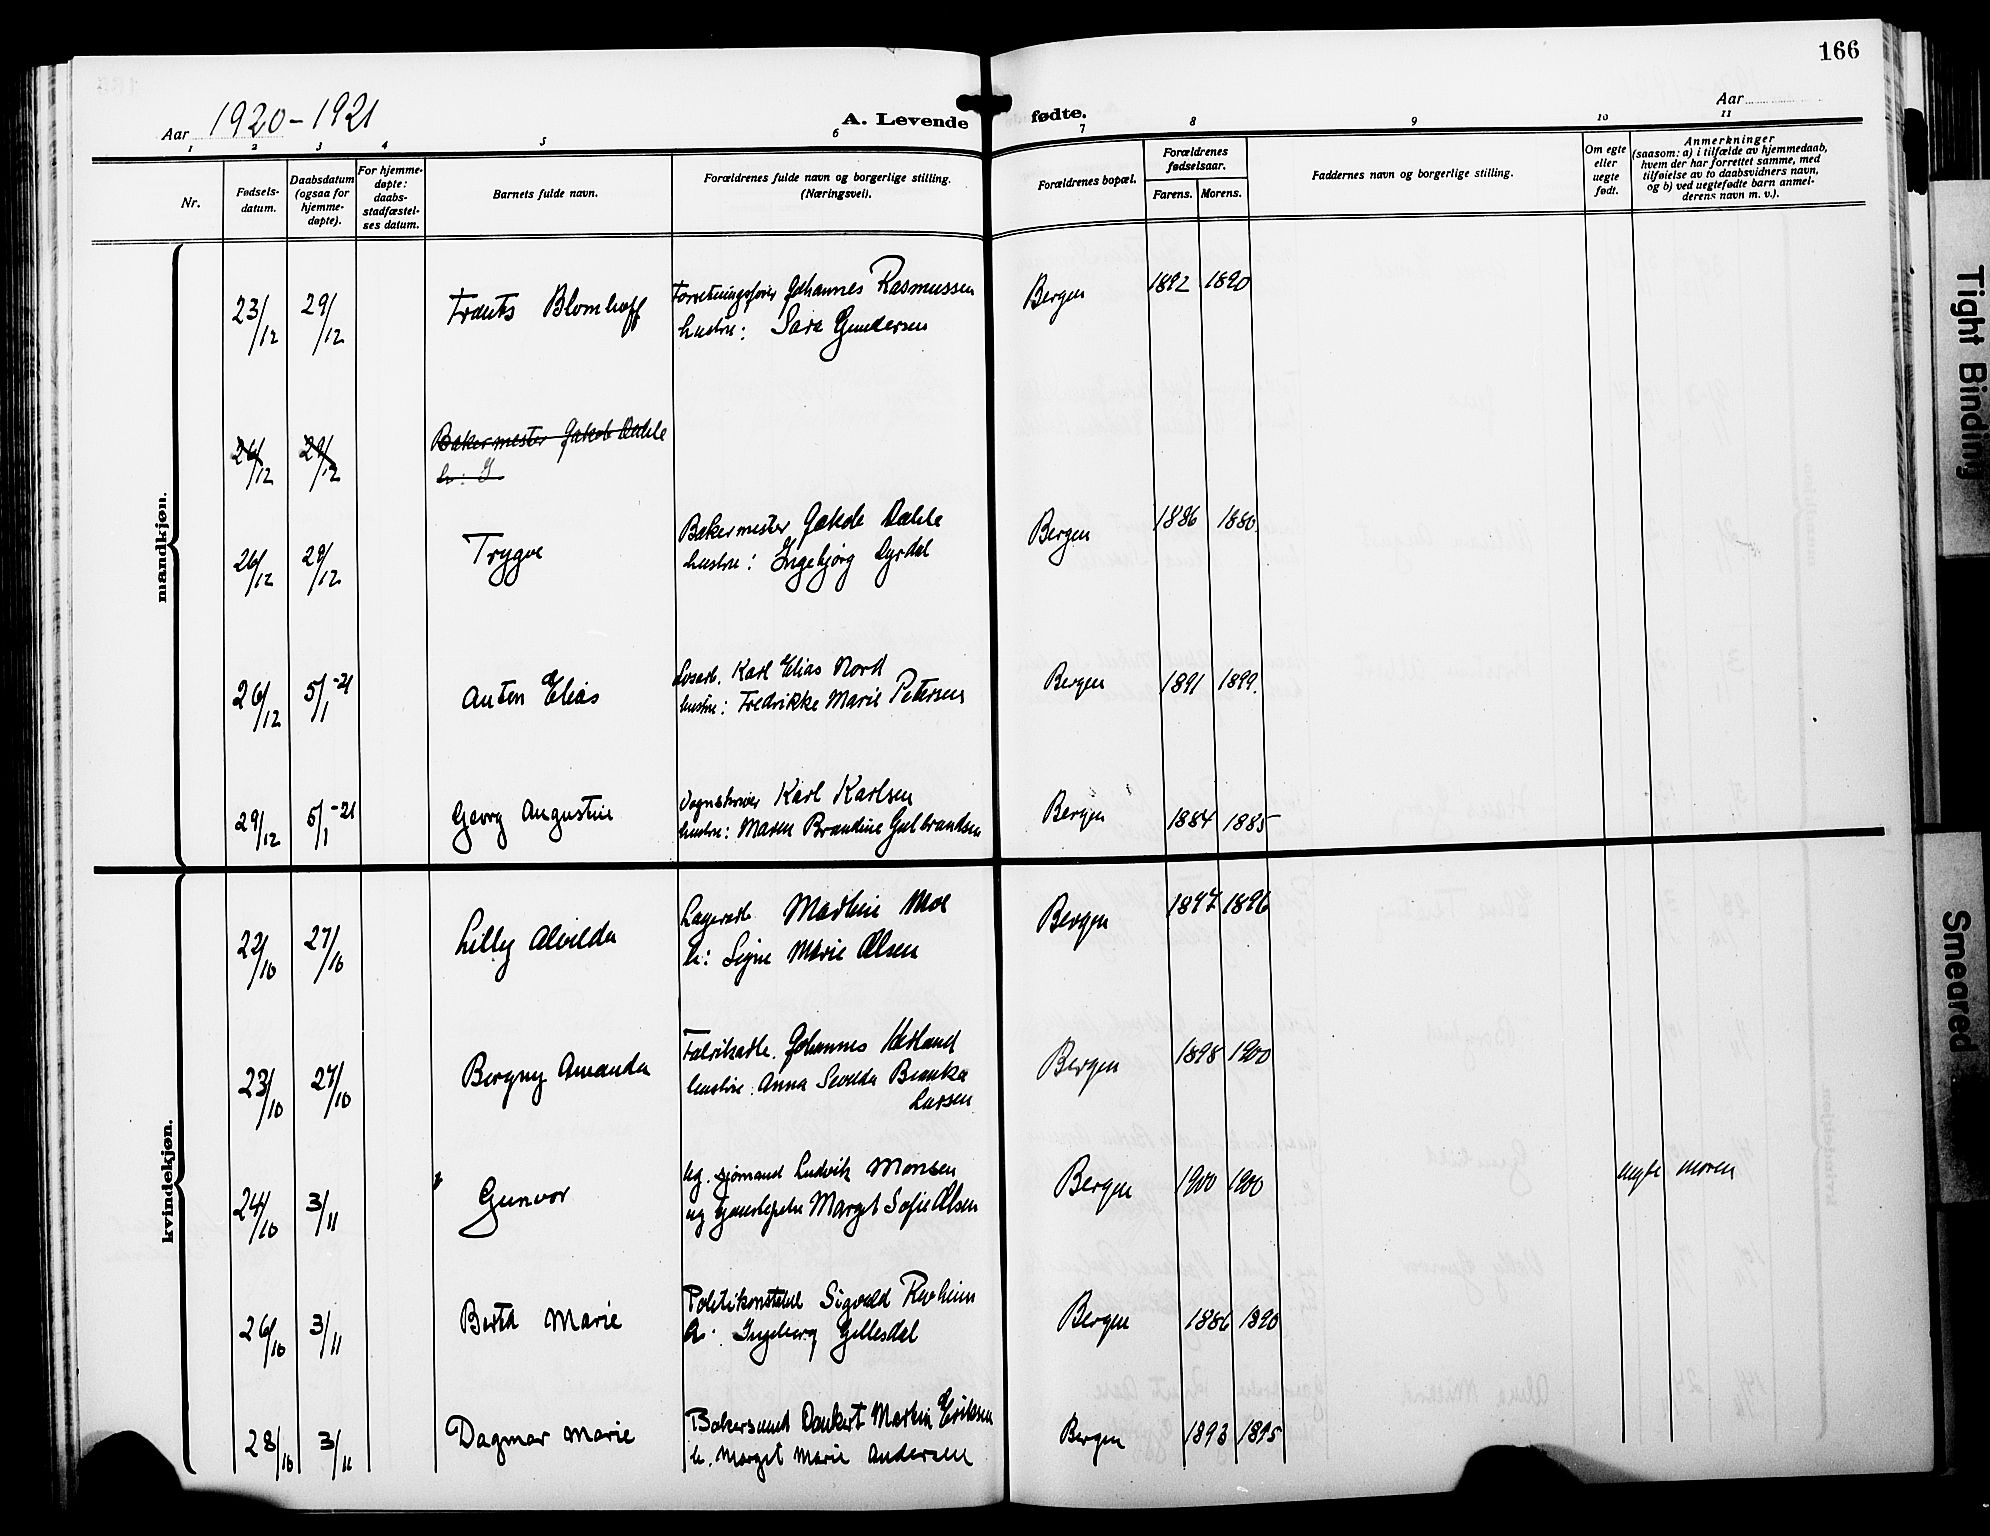 166
Aar 1920-1921
A. Levende fødte.
Aar
1 2 3 4 5 6 7 8 9 10 11
Nr.
Fødsels-
datum.
Daabsdatum
(ogsaa for
hjemme-
døpte).
For hjemme-
døpte:
daabs-
stadfæstel-
ses datum.
Barnets fulde navn.
Forældrenes fulde navn og borgerlige stilling.
(Næringsvei).
Forældrenes bopæl.
Forældrenes
fødselsaar.
Farens. Morens.
Faddernes navn og borgerlige stilling.
Om egte
eller
uegte
født.
Anmerkninger
(saasom: a) i tilfælde av hjemmedaab,
hvem der har forrettet samme, med
tilføielse av to daabsvidners navn,
og b) ved uegtefødte barn anmel-
derens navn m. v.).
mandkjøn.
23/12 29/12 Frants Blomhoff Forretningsfører Johannes Rasmussen Bergen 1892 1890
hustru: Sara Gundersen
26/12 29/12 Bakermester Jakob Dahle
h: I
26/12 29/12 Trygve Bakermester Jakob Dahle Bergen 1886 1880.
hustru: Ingebjørg Dyrdal
26/12 5/1-21 Anton Elias Løsarb. Karl Elias Nord Bergen 1891 1899.
hustru: Fredrikke Marie Petersen
29/12 5/1-21 Georg Augustin Vognskriver Karl Karlsen Bergen 1884 1885
hustru: Maren Brandine Gulbrandsen
kvindekjøn.
22/10 27/10 Lilly Alvilda Lagerarb. Martin Moe Bergen 1897 1896
h: Signe Marie Olsen
23/10 27/10 Borgny Amanda Fabrikarb. Johannes Bergen 1898 1900
hustru: Anna Bianka
Larsen
24/10 3/11 Gunvor Ug. sjømand Ludvik Monsen Bergen 1900 1900 uegte moren
ug Margit Sofie Olsen
26/10 3/11 Berta Marie Politikonstabel Sigvald Revheim Bergen 1886 1890
h: Ingeborg Gillesdal
28/10 3/11 Dagmar Marie Bakersvend Dankert Martin Eriksen Bergen 1893 1895
h. Margit Marie Andersen
Tight Binding
Smeared